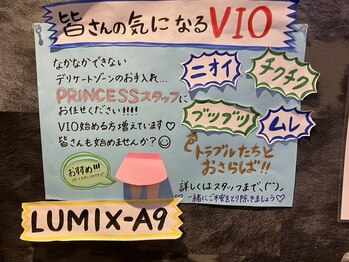 皆さんの気になるVIO
なかなかできない
デリケートゾーンのお手入れ...
PRINCESSスタッフに
お任せください!!!!
VIO始める方増えています♡
皆さんも始めませんか?☺
ニオイ
チクチク
ブツブツ
ムレ
トラブルたちと
おさらば!!
詳しくはスタッフまで、(^^)、
♡一緒にご不安をとり除きましょう♡
お勧め!!!
LUMIX-A9